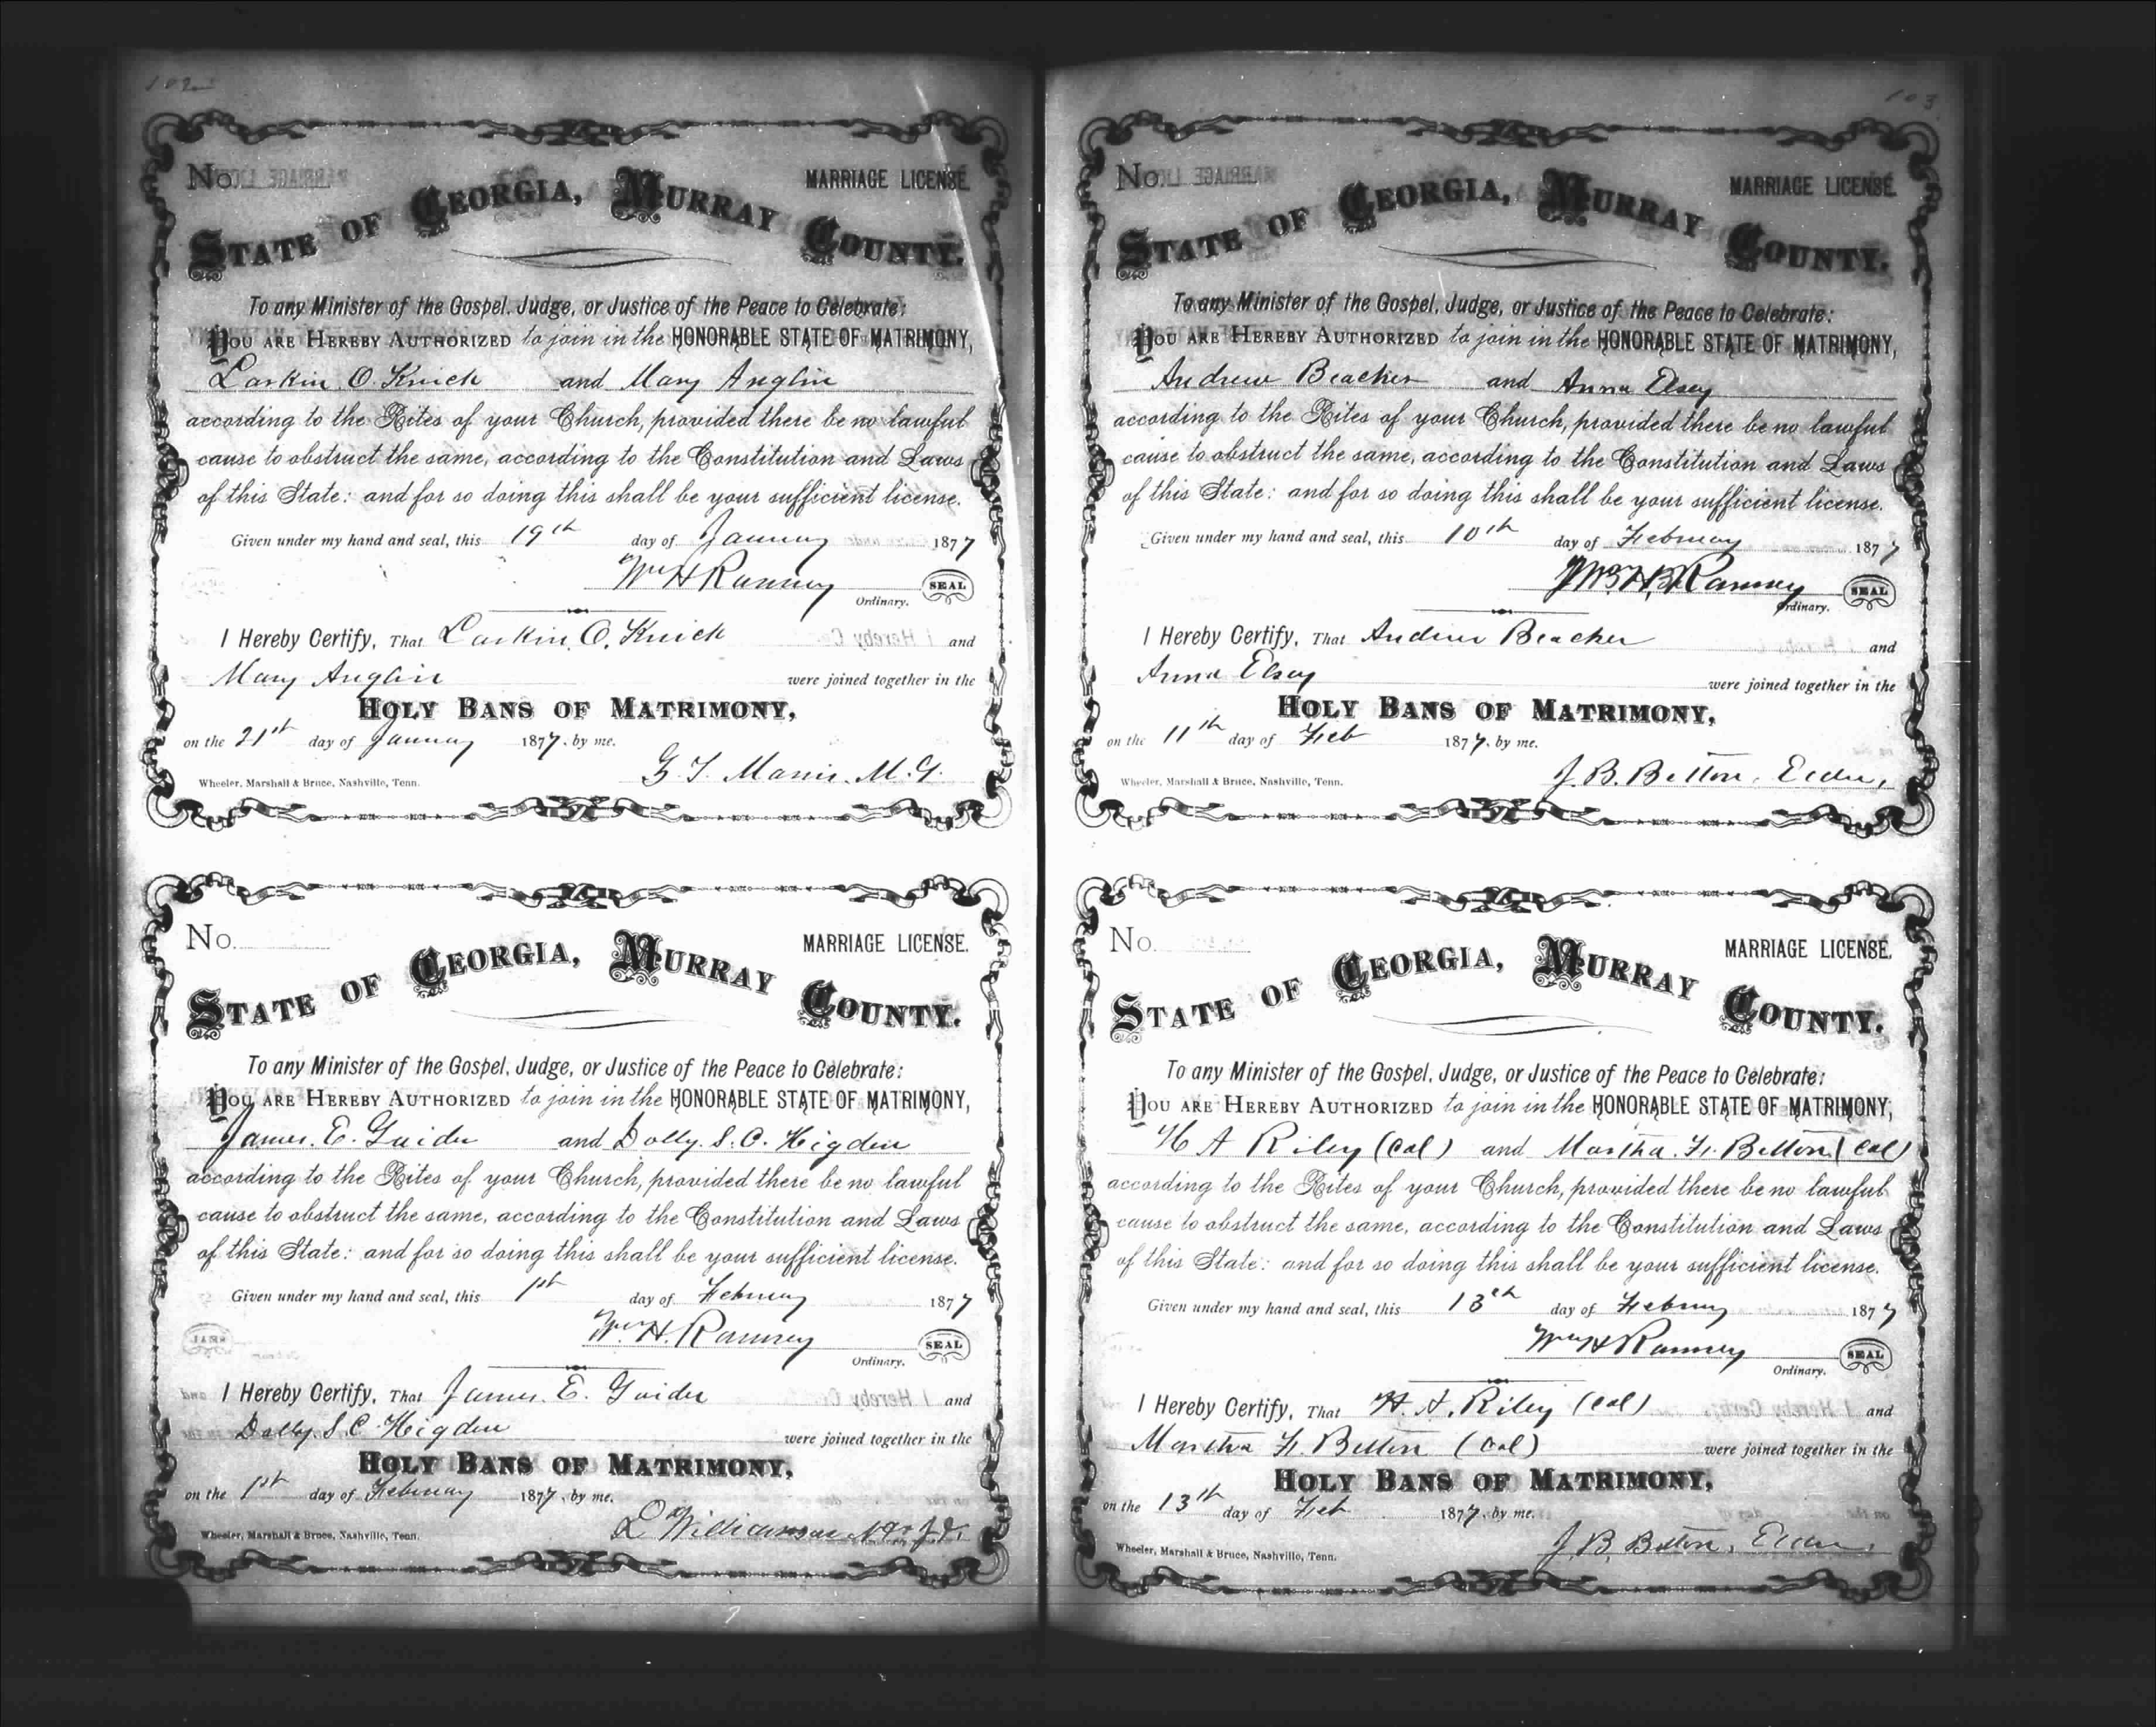 102
No.
MARRIAGE LICENSE.
STATE OF GEORGIA, MURRAY COUNTY.
To any Minister of the Gospel, Judge, or Justice of the Peace to Celebrate:
YOU ARE HEREBY AUTHORIZED to join in the HONORABLE STATE OF MATRIMONY,
Larkin O. Knick and Mary Anglin
according to the Rites of your Church, provided there be no lawful
cause to obstruct the same, according to the Constitution and Laws
of this State: and for so doing this shall be your sufficient license.
Given under my hand and seal, this 19th day of January 1877
Wm H Ramsey SEAL
Ordinary.
I Hereby Certify, That Larkin O. Knick and
Mary Anglin were joined together in the
HOLY BANS OF MATRIMONY,
on the 21st day of January 1877, by me.
G. T. M. G.
Wheeler, Marshall & Bruce, Nashville, Tenn.
No.
MARRIAGE LICENSE.
STATE OF GEORGIA, MURRAY COUNTY.
To any Minister of the Gospel, Judge, or Justice of the Peace to Celebrate:
YOU ARE HEREBY AUTHORIZED to join in the HONORABLE STATE OF MATRIMONY,
James. E. Guider and Dolly. S. C. Higdon
according to the Rites of your Church, provided there be no lawful
cause to obstruct the same, according to the Constitution and Laws
of this State: and for so doing this shall be your sufficient license.
Given under my hand and seal, this 1st day of February 1877
Wm H. Ramsey SEAL
Ordinary.
I Hereby Certify, That James. E. Guider and
Dolly. S. C. Higdon were joined together in the
HOLY BANS OF MATRIMONY,
on the 1st day of February 1877, by me.
Williamson
Wheeler, Marshall & Bruce, Nashville, Tenn.
103
No.
MARRIAGE LICENSE.
STATE OF GEORGIA, MURRAY COUNTY.
To any Minister of the Gospel, Judge, or Justice of the Peace to Celebrate:
YOU ARE HEREBY AUTHORIZED to join in the HONORABLE STATE OF MATRIMONY,
Andrew Beacher and Anna Elsey
according to the Rites of your Church, provided there be no lawful
cause to obstruct the same, according to the Constitution and Laws
of this State: and for so doing this shall be your sufficient license.
Given under my hand and seal, this 10th day of February 1877
Ramsey SEAL
Ordinary.
I Hereby Certify, That Andrew Beacher and
Anna Elsey were joined together in the
HOLY BANS OF MATRIMONY,
on the 11th day of Feb 1877, by me.
J. B. Betton, Elder,
Wheeler, Marshall & Bruce, Nashville, Tenn.
No.
MARRIAGE LICENSE.
STATE OF GEORGIA, MURRAY COUNTY.
To any Minister of the Gospel, Judge, or Justice of the Peace to Celebrate:
YOU ARE HEREBY AUTHORIZED to join in the HONORABLE STATE OF MATRIMONY,
H A Riley (Col) and Martha. F. Betton (Col)
according to the Rites of your Church, provided there be no lawful
cause to obstruct the same, according to the Constitution and Laws
of this State: and for so doing this shall be your sufficient license.
Given under my hand and seal, this 13th day of February 1877
Wm H Ramsey SEAL
Ordinary.
I Hereby Certify, That H. A. Riley (Col) and
Martha F. Betton (Col) were joined together in the
HOLY BANS OF MATRIMONY,
on the 13th day of Feb 1877, by me.
J. B. Betton, Elder,
Wheeler, Marshall & Bruce, Nashville, Tenn.